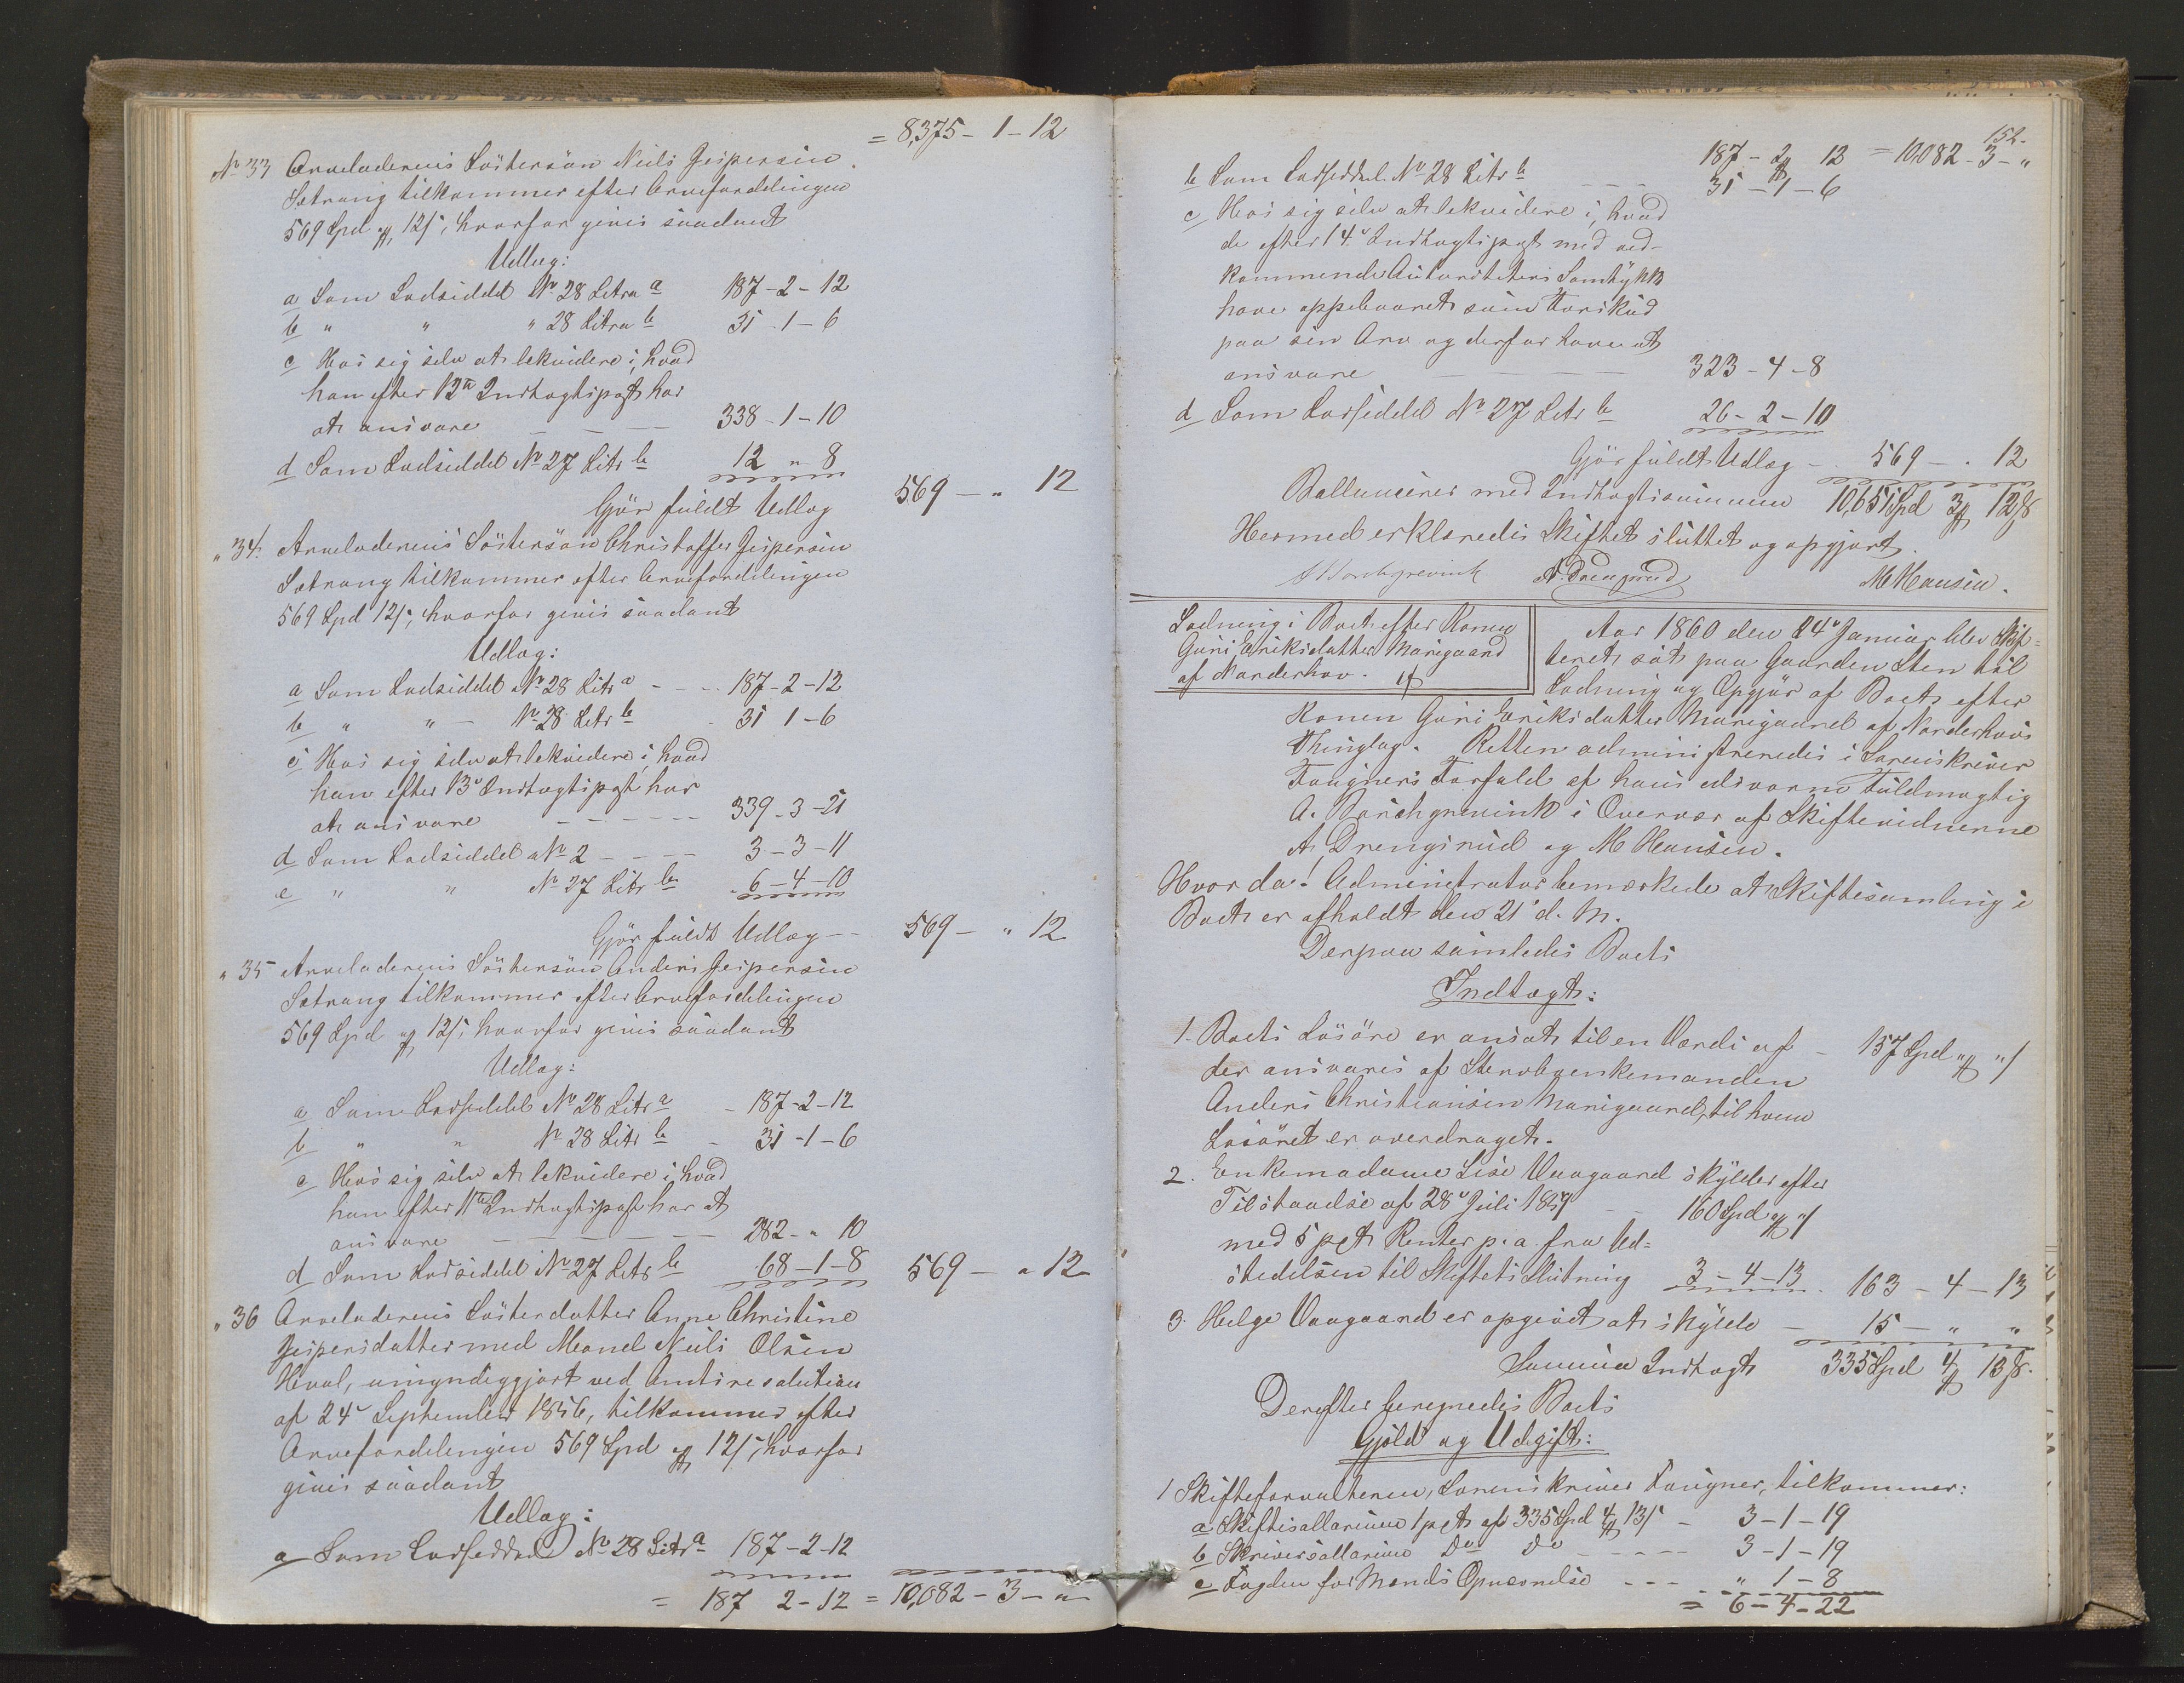 = 8,375 - 1 - 12
No 33 Arveladerens Søstersøn Niels Jespersen
Sætrang tilkommer efter Arvefordelingen
569 Spd " ₰ 12 s, hvorfor gives saadant
Udlæg:
a Som Lodseddel No 28 Litra a 187 - 2 - 12
b " " " 28 Litra b 31 - 1 - 6
c Hos sig selv at lekvidere i, hvad
han efter 12te Indtægtspost har
at ansvare 338 - 1 - 10
d Som Lodseddel No 27 Litr b 12 " 8
Gjør fuldt Udlæg 569 - " 12
" 34. Arveladerens Søstersøn Christoffer Jespersen
Sætrang tilkommer efter Arvefordelingen
569 Spd 12 s, hvorfor gives saadant
Udlæg:
a Som Lodseddel No 28 Litr a - - 187 - 2 - 12
b " " - No 28 Litr b 31 1 - 6
c Hos sig selv at lekvidere i, hvad
han efter 13de Indtægtspost har
at ansvare - - - - - - 339 - 3 - 21
d Som Lodseddel No 2 - - - - 3 - 3 - 11
e " " No 27 Litr b 6 - 4 - 10
Gjør fuldt Udlæg - - 569 - " 12
" 35 Arveladerens Søstersøn Anders Jespersen
Sætrang tilkommer efter Arvefordelingen
569 Spd " ₰ 12 s, hvorfor gives saadant
Udlæg:
a Som Lodseddel No 28 Litr a - 187 - 2 - 12
b " " No 28 Litr b - 31 - 1 - 6
c Hos sig selv at lekvidere i, hvad
han efter 11te Indtægtspost har at
ansvare - - - - 282 - " 10
d Som Lodseddel No 27 Litr b 68 - 1 - 8 569 - " 12
" 36 Arveladerens Søsterdatter Anne Christine
Jespersdatter med Mand Niels Olsen
Hval, umyndiggjort ved Amtsresolution
af 24de September 1856, tilkommer efter
Arvefordelingen 569 Spd " ₰ 12 s, hvorfor
gives saadant
Udlæg:
a Som Lodseddel No 28 Litr a 187 - 2 - 12
= 187 2 - 12 = 10,082 - 3 - "
152.
187 - 2 ₰ 12 = 10,082 - 3 - "
b Som Lodseddel No 28 Litr b - - - 31 - 1 - 6
c Hos sig selv at lekvidere i, hvad
de efter 14de Indtægtspost med ved-
kommende Autoriteters Samtykke
have oppebaaret som Forskud
paa sin Arv og derfor have at
ansvare - - - 323 - 4 - 8
d Som Lodseddel No 27 Litr b 26 - 2 - 10
Gjør fuldt Udlæg - 569 - " 12
Ballancerer med Indtægtssummen 10,651 Spd 3 ₰ 12 s
Hermed erklæredes Skiftet sluttet og opgjort.
A Borchgrevink A. Drengsrud M Hansen.
Lodning i Boet efter Konen
Guri Eriksdatter Marigaard
af Norderhov.
Aar 1860 den 24de Januar blev Skif-
teret sat paa Gaarden Sten til
Lodning og Opgjør af Boet efter
Konen Guri Eriksdatter Marigaard af Norderhovs
Thinglag. Retten administreredes i Sorenskriver
Fougners Forfald af hans edsvorne Fuldmægtig
A. Borchgrevink i Overvær af Skiftevidnerne
A Drengsrud og M Hansen.
Hvor da! Administrator bemærkede at Skiftesamling i
Boet er afholdt den 21de d. M.
Derpaa samledes Boets
Indtægt:
1. Boets Løsøre er ansat til en Værdi af - 157 Spd " ₰ " s
der ansvares af Stervboenkemanden
Anders Christiansen Marigaard, til hvem
Løsøret er overdraget.
2. Enkemadame Lise Vaagaard skylder efter
Tilstaaelse af 28de Juli 1859 - - 160 Spd " ₰ " s
med 5 pct Renter p. a. fra Ud-
stedelsen til Skiftets Slutning 3 - 4 - 13 163 - 4 - 13
3. Helge Vaagaard er opgivet at skylde - 15 - " "
Summa Indtægt 335 Spd 4 ₰ 13 s.
Derefter beregnedes Boets
Gjæld og Udgift:
1 Skifteforvalteren, Sorenskriver Fougner, tilkommer:
a Skiftesallarium 1 pct af 335 Spd 4 ₰ 13 s - 3 - 1 - 19
b Skriversallarium Do Do - - - - 3 - 1 - 19
c Fogden for Mænds Opnævnelse - - - " 1 - 8
= 6 - 4 - 22